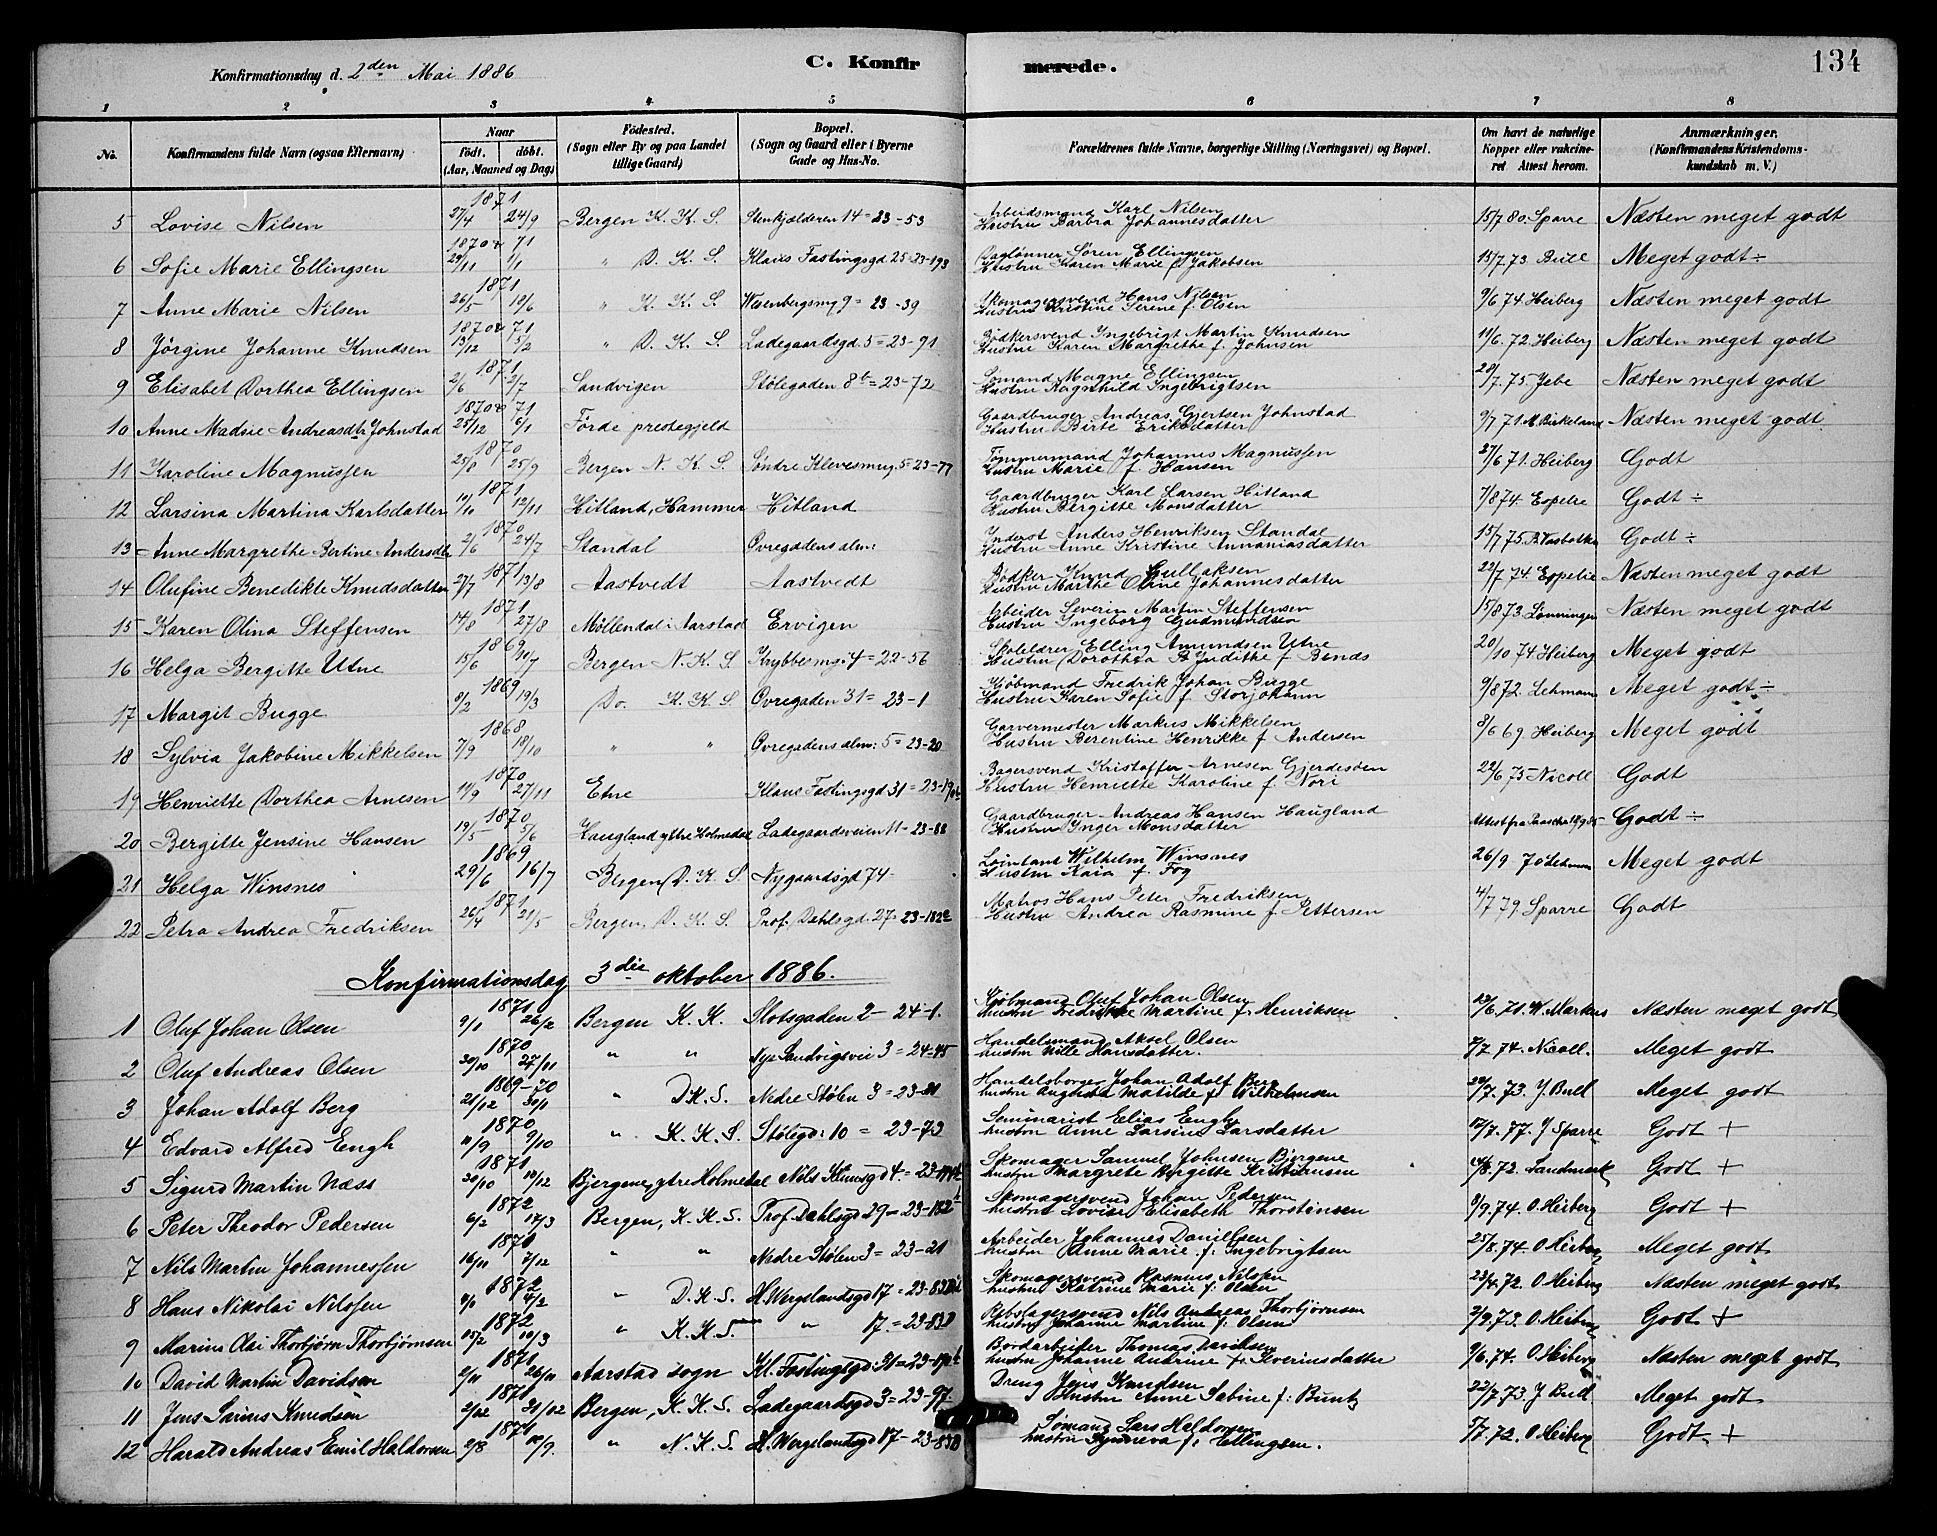 134
Konfirmationsdag d. 2den Mai 1886 C. Konfirmerede.
1 2 3 4 5 6 7 8
No. Konfirmandens fulde Navn (ogsaa Efternavn) Naar født. døbt. (Aar, Maaned og Dag) Fødested. (Sogn eller By og paa Landet tillige Gaard) Bopæl. (Sogn og Gaard eller i Byerne Gade og Hus-No. Forældrenes fulde Navne, borgerlige Stilling (Næringsvei) og Bopæl. Om havt de naturlige Kopper eller vakcineret Attest herom. Anmærkninger. (Konfirmandens Kristendomskundskab m. V.)
5 Lovise Nilsen 1871 27/4 24/9 Bergen K. K. S. Stenkjelderen 14 = 23-53 Arbeidsmand Karl Nilsen Hustru Barbra Johannesdatter 15/7 80. Sparre Næsten meget godt
6 Sofie Marie Ellingsen 1870 & 71 29/11 1/1 " D. K. S. Klaus Fastingsgd 25 23-193 Daglønner Søren Ellingsen Hustru Karen Marie f. Jakobsen 15/7.73 Meget godt ÷
7 Anne Marie Nilsen 1871 26/5 18/6 " K. K. S 9 = 23-39 Skomagersvend Hans Nilsen Hustru Kristine Serene f. Olsen 9/6 74. Heiberg Næsten meget godt
8 Jørgine Johanne Knudsen 1870 & 71 13/12 5/2 " D. K. S. Ladegaardsgd. 5 = 23-91 Bødkersvend Ingebrigt Martin Knudsen Hustru Karen Margrethe f. Johnsen 11/6.72. Heiberg Næsten meget godt
9 Elisabet Dorthea Ellingsen 1871 2/6 2/7 Sandvigen Stølegaden 8b = 23-72 Sømand Magne Ellingsen Hustru Ragnhild Ingebrigtsen 28/7.75. Jebe Næsten meget godt
10 Anne Madsie Andreasdtr Johnstad 1870 & 71 25/12 6/1 Førde prestegjeld Gaardbruger Andreas Gjertsen Johnstad Hustru Birte Eriksdatter 9/7 71. M. Birkeland Næsten meget godt
11 Karoline Magnussen 1870 25/8 25/9 Bergen N. K. S. Søndre Klevesmug. 5 = 23-77 Tømmermand Johannes Magnussen Hustru Marie f. Hansen 27/6 71. Heiberg Godt
12 Larsina Martina Karlsdatter 1871 10/10 12/11 Hitland, Hammer Hitland Gaardbruger Karl Larsen Hitland Hustru Bergitte Monsdatter 7/8 74. Espelie Godt ÷
13 Anne Margrethe Bertine Andersdtr 1870 2/6 24/7 Standal Øvregadens alm: Inderst Anders Henriksen Standal Hustru Anne Kristine Annaniasdatter 15/7 75. Godt ÷
14 Olufine Benedikte Knudsdatter 1871 27/7 13/8 Aastvedt Aastvedt Bødker Knud Gullaksen Hustru Marthe Oline Johannesdatter 22/7 74. Espelie Næsten meget godt
15 Karen Olina Steffensen 1871 14/8 27/8 Møllendal i Aarstad Ervigen Arbeider Severin Martin Steffensen Hustru Ingeborg Gudmundsen 15/8 73. Lønningen Næsten meget godt
16 Helga Bergitte Utne 1869 15/6 11/7 Bergen N. K. S Krybbesmg: 4 = 22-56 Skolelærer Elling Amundsen Utne Hustru Dorothea B. Judithe f. Bends 20/10 74. Heiberg Meget godt
17 Margit Bugge 1869 8/2 19/3 Do. K. K. S Øvregaden 31 = 23-1 Kjøbmand Fredrik Johan Bugge Hustru Karen Sofie f. Storjohann 9/8 72. Lehmann Meget godt ÷
18 Sylvia Jakobine Mikkelsen 1868 7/9 18/10 " " Øvregadens alm: 5 = 23-20 Garvermester Markus Mikkelsen Hustru Berentine Henrikke f. Andersen 8/6 69 Heiberg Meget godt
19 Henriette Dorthea Arnesen 1870 11/9 27/11 Etne Klaus Fastingsgd 31 = Bagersvend Kristoffer Arnesen Gjerdesden Hustru Henriette Karoline f. Nori 22/6 75 Nicoll Godt
20 Bergitte Jensine Hansen 1870 19/5 5/6 Haugland ytre Holmedal Ladegaardsveien 11 = 23-88 Gaardbruger Andreas Hansen Haugland Hustru Inger Monsdatter Attest fra Godt ÷
21 Helga Winsnes 1869 29/6 16/7 Bergen D. K. S Nygaardsgd 74 - Løintant Wilhelm Winsnes Hustru Kaia f. Fog 26/9 70 Lehmann Meget godt
22 Petra Andrea Fredriksen 1871 26/4 21/5 Bergen, D. K. S. Prof. Dahlsgd. 27 = 23-182c Matros Hans Peter Fredriksen Hustru Andrea Rasmine f. Pettersen 4/7 79. Sparre Godt
Konfirmationsdag 3die oktober 1886.
1 Oluf Johan Olsen 1871 9/1 26/2 Bergen K. K. Slotsgaden 2 - 24-1. Kjøbmand Oluf Johan Olsen hustru Fredrikke Martine f. Henriksen /6.71. W. Markus Næsten meget godt
2 Oluf Andreas Olsen 1870 30/10 27/11 " " Nye Sandvigsvei 3 = 24-45 Handelsmand Aksel Olsen hustru Nille Hansdatter. 7/7 74. Nicoll. Meget godt
3 Johan Adolf Berg 1869-70 21/12 30/1 " D.K.S. Nedre Stølen 3 = 23-21 Handelsborger Johan Adolf Berg hustru Augusta Matilde f. Wilhelmsen 29/7. 73. J Bull Meget godt
4 Edvard Alfred Engh 1870 11/9 9/10 " K. K. S. Stølegd: 10 = 23-73 Seminarist Elias Engh hustru Anne Larsine Larsdatter 17/7. 77. J Sparre Godt +
5 Sigurd Martin Næss 1871 30/10 10/12 Bjergene, ytre Holmedal Nils Klimsgd 4. = Skomager Samuel Johnsen Bjergene hustru Margrete Bergitte Kristiansen 14/8. 72. Landmark Godt +
6 Peter Theodor Pedersen 1872 6/2 17/3 Bergen, K. K. S. Prof. Dahlsgd 29 = 23-182b Skomagersvend Johan Pedersen hustru Lovise Elisabeth Thorstensen 8/9. 74. O. Heiberg Godt +
7 Nils Martin Johannessen 1871 16/11 7/12 " " Nedre Stølen 3 = 23-21 Arbeider Johannes Danielsen hustru Anne Marie f: Ingebrigtsen 25/8. 74. O Heiberg Meget godt
8 Hans Nikolai Nilssen 1872 9/1 4/2 " D. K. S. H. Wergelandsgd 17 = Skomagersvend Rasmus Nilssen hustru Katrine Marie f. Olsen 23/4. 72. O Heiberg Næsten meget godt
9 Marius Olai Thorbjørn Thorbjørnsen 1872 15/2 10/3 " K. K. S. " 17. = 23-83D Rebslagersvend Nils Andreas Thorbjørnsen hustru Johanne Martine f. Olsen 2/9. 73. O. Heiberg Godt +
10 David Martin Davidsen 1871 2/11 26/11 Aarstad sogn Kl. Fastingsgd 31 = Bordarbeider Thomas Davidsen hustru Johanne Andrine f. Severinsdatter 9/6. 74. O. Heiberg Næsten meget godt
11 Jens Sarius Knudsen 1871 2/12 31/12 Bergen, K. K. S. Ladegaardsgd 3 = 23-97. Dreng Jens Knudsen Hustru Anne Sabine f: Buntz 22/7. 73. J. Bull Meget godt
12 Harald Andreas Emil Haldorsen 1871 9/8 10/9. " N. K. S. H. Wergelandsgd 17 - 23-83D Sømand Lars Haldorsen hustru Synneva f: Ellingsen. 5/7. 72. O Heiberg Godt. +